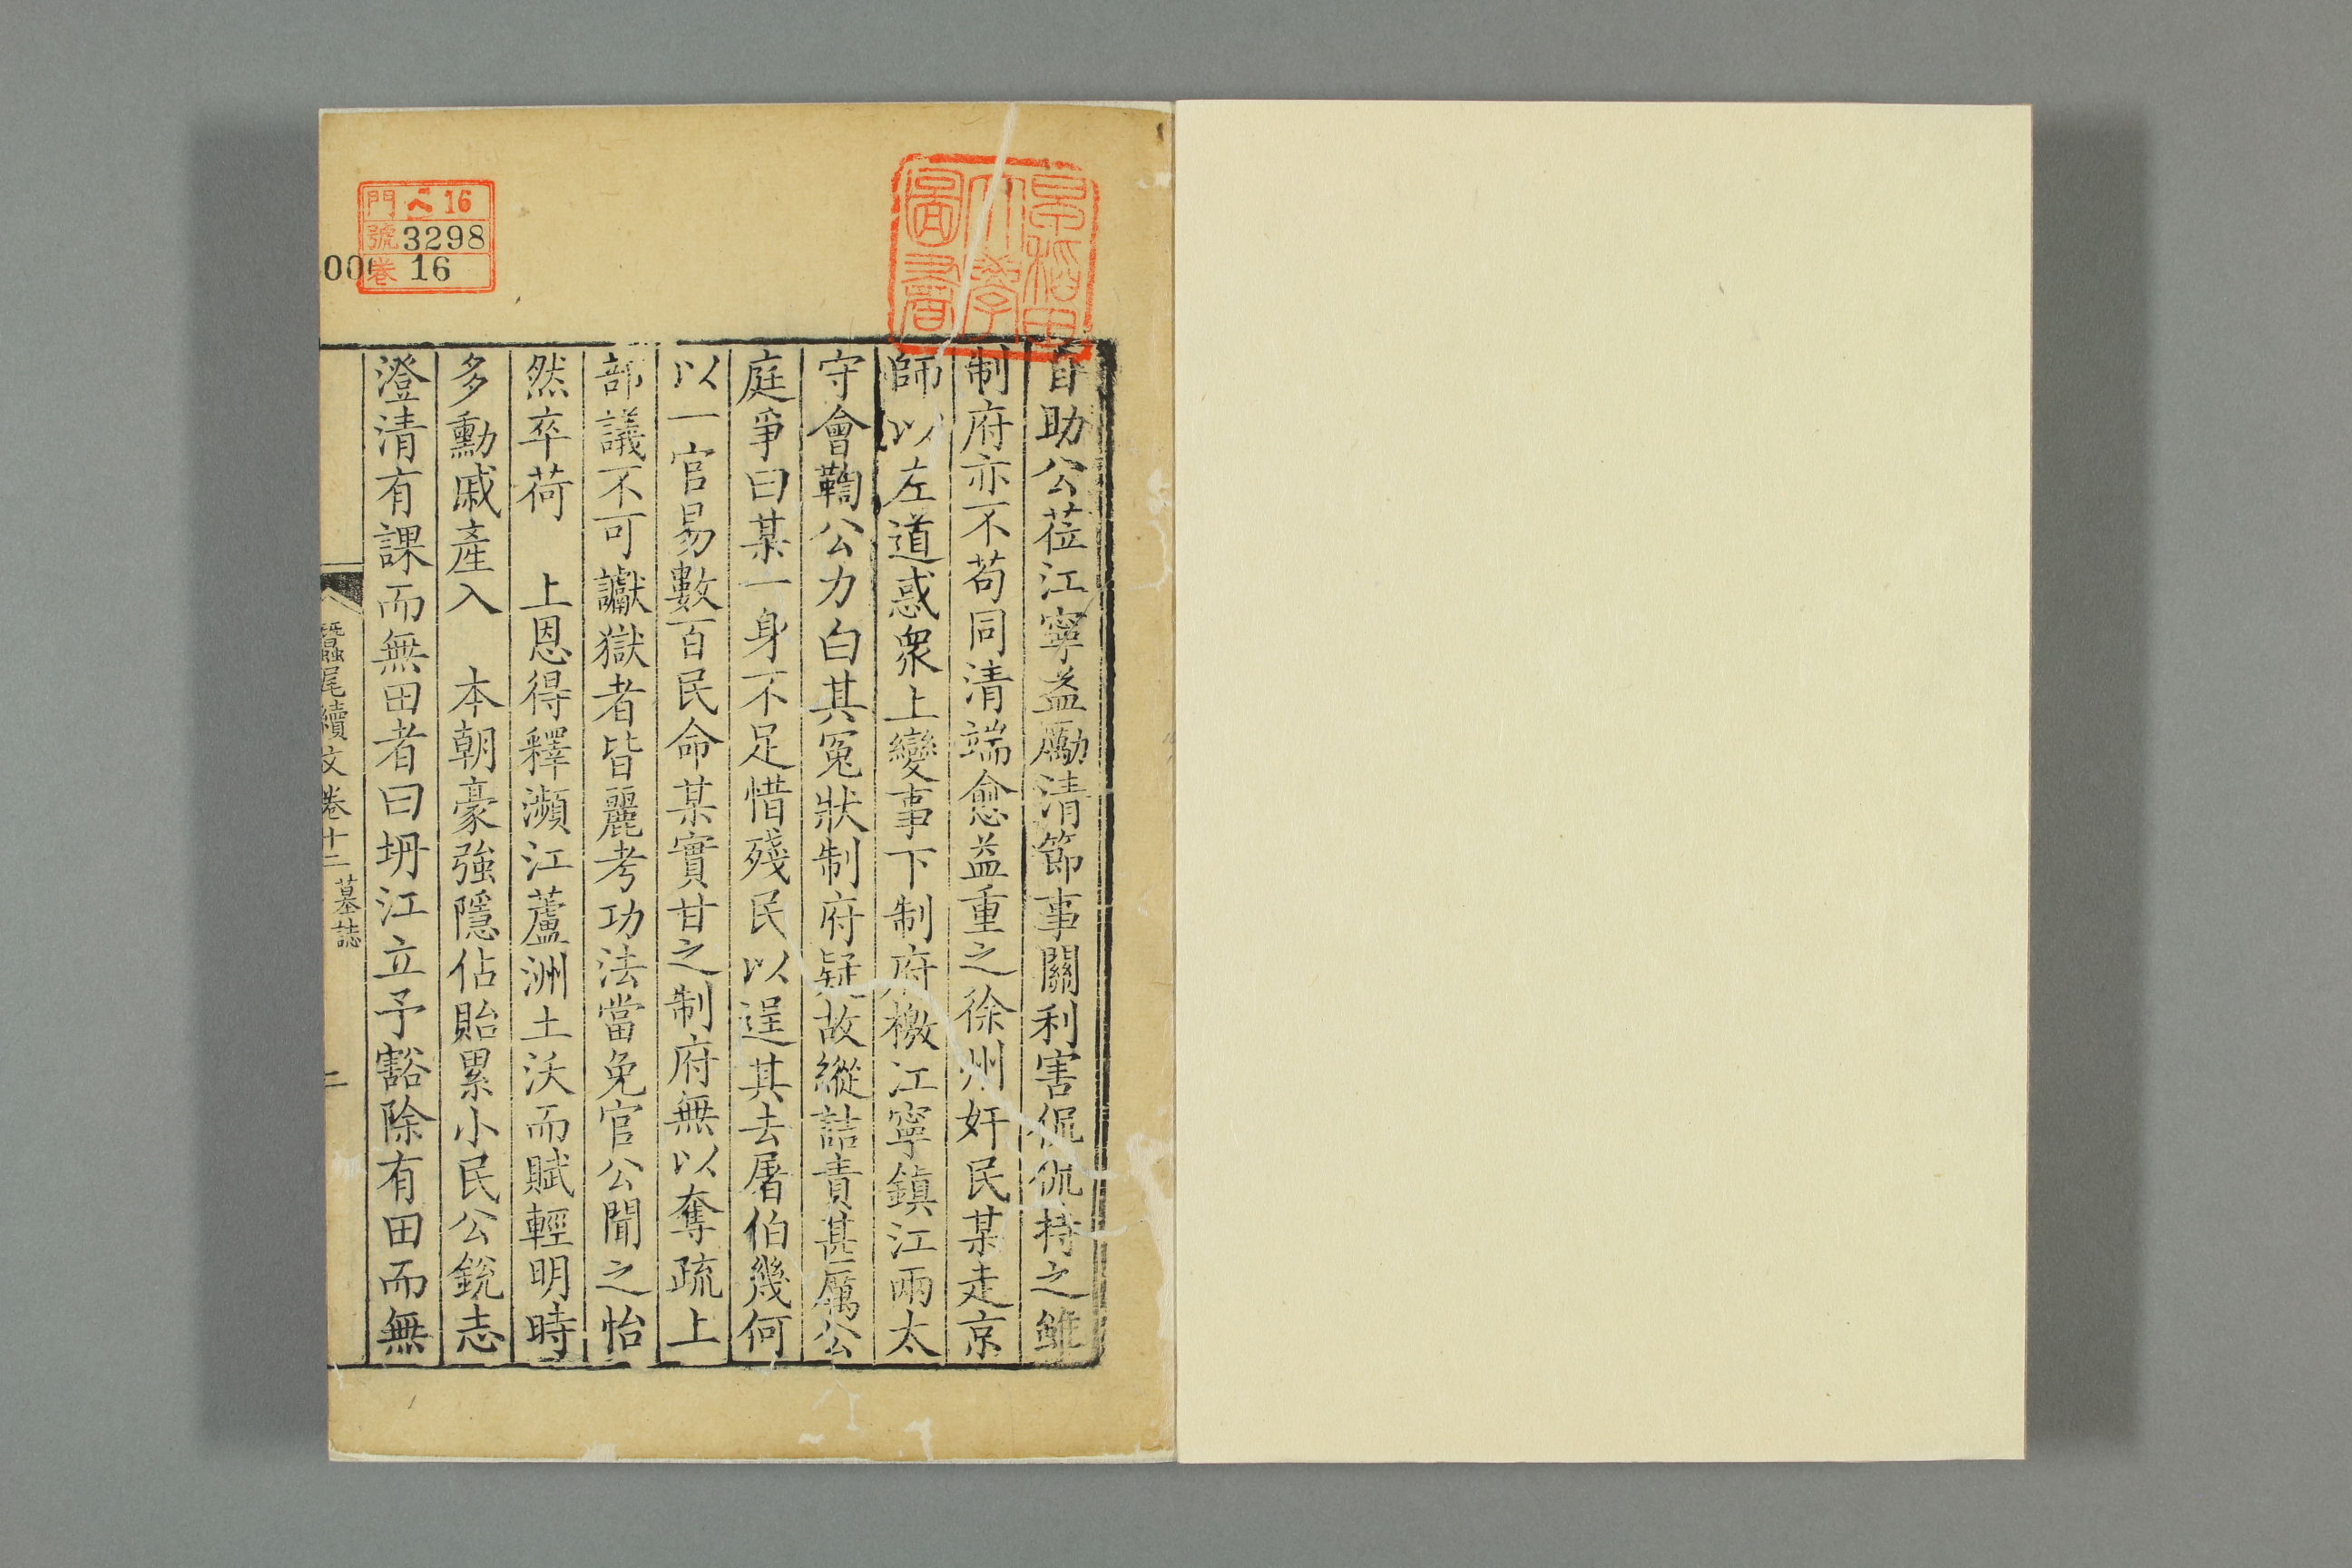 早稲田
大學
圖書
門 ヘ16
號 3298
卷 16
自助公莅江寧益勵清節事關利害侃侃持之雖
制府亦不苟同清端愈益重之徐州奸民某走京
師以左道惑衆上變事下制府檄江寧鎮江兩太
守會鞫公力白其冤狀制府疑故縱詰責甚厲公
庭爭曰某一身不足惜殘民以逞其去屠伯幾何
以一官易數百民命某實甘之制府無以奪疏上
部議不可讞獄者皆麗考功法當免官公聞之怡
然卒荷　上恩得釋瀕江蘆洲土沃而賦輕明時
多勳戚產入　本朝豪強隱佔貽累小民公銳志
澄清有課而無田者曰坍江立予豁除有田而無
蠶尾續文卷十二 墓誌 二